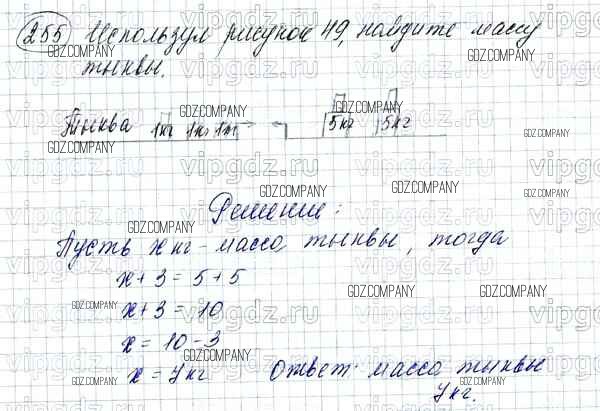 255 Используя рисунок 49, найдите массу
тыквы.
Тыква 1кг 1кг 1кг 5кг 5кг
Решение:
Пусть x кг - масса тыквы, тогда
x + 3 = 5 + 5
x + 3 = 10
x = 10 - 3
x = 7 кг
Ответ: масса тыквы
7 кг.
GDZ.COMPANY
vipgdz.ru